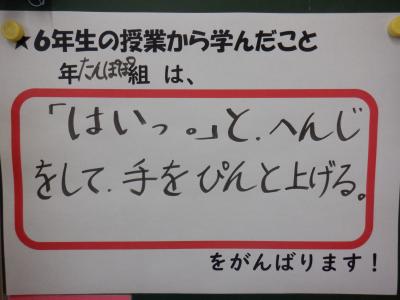 ★６年生の授業から学んだこと
年たんぽぽ組 は、
「はいっ。」と.へんじ
をして.手をぴんと上げる。
をがんばります！